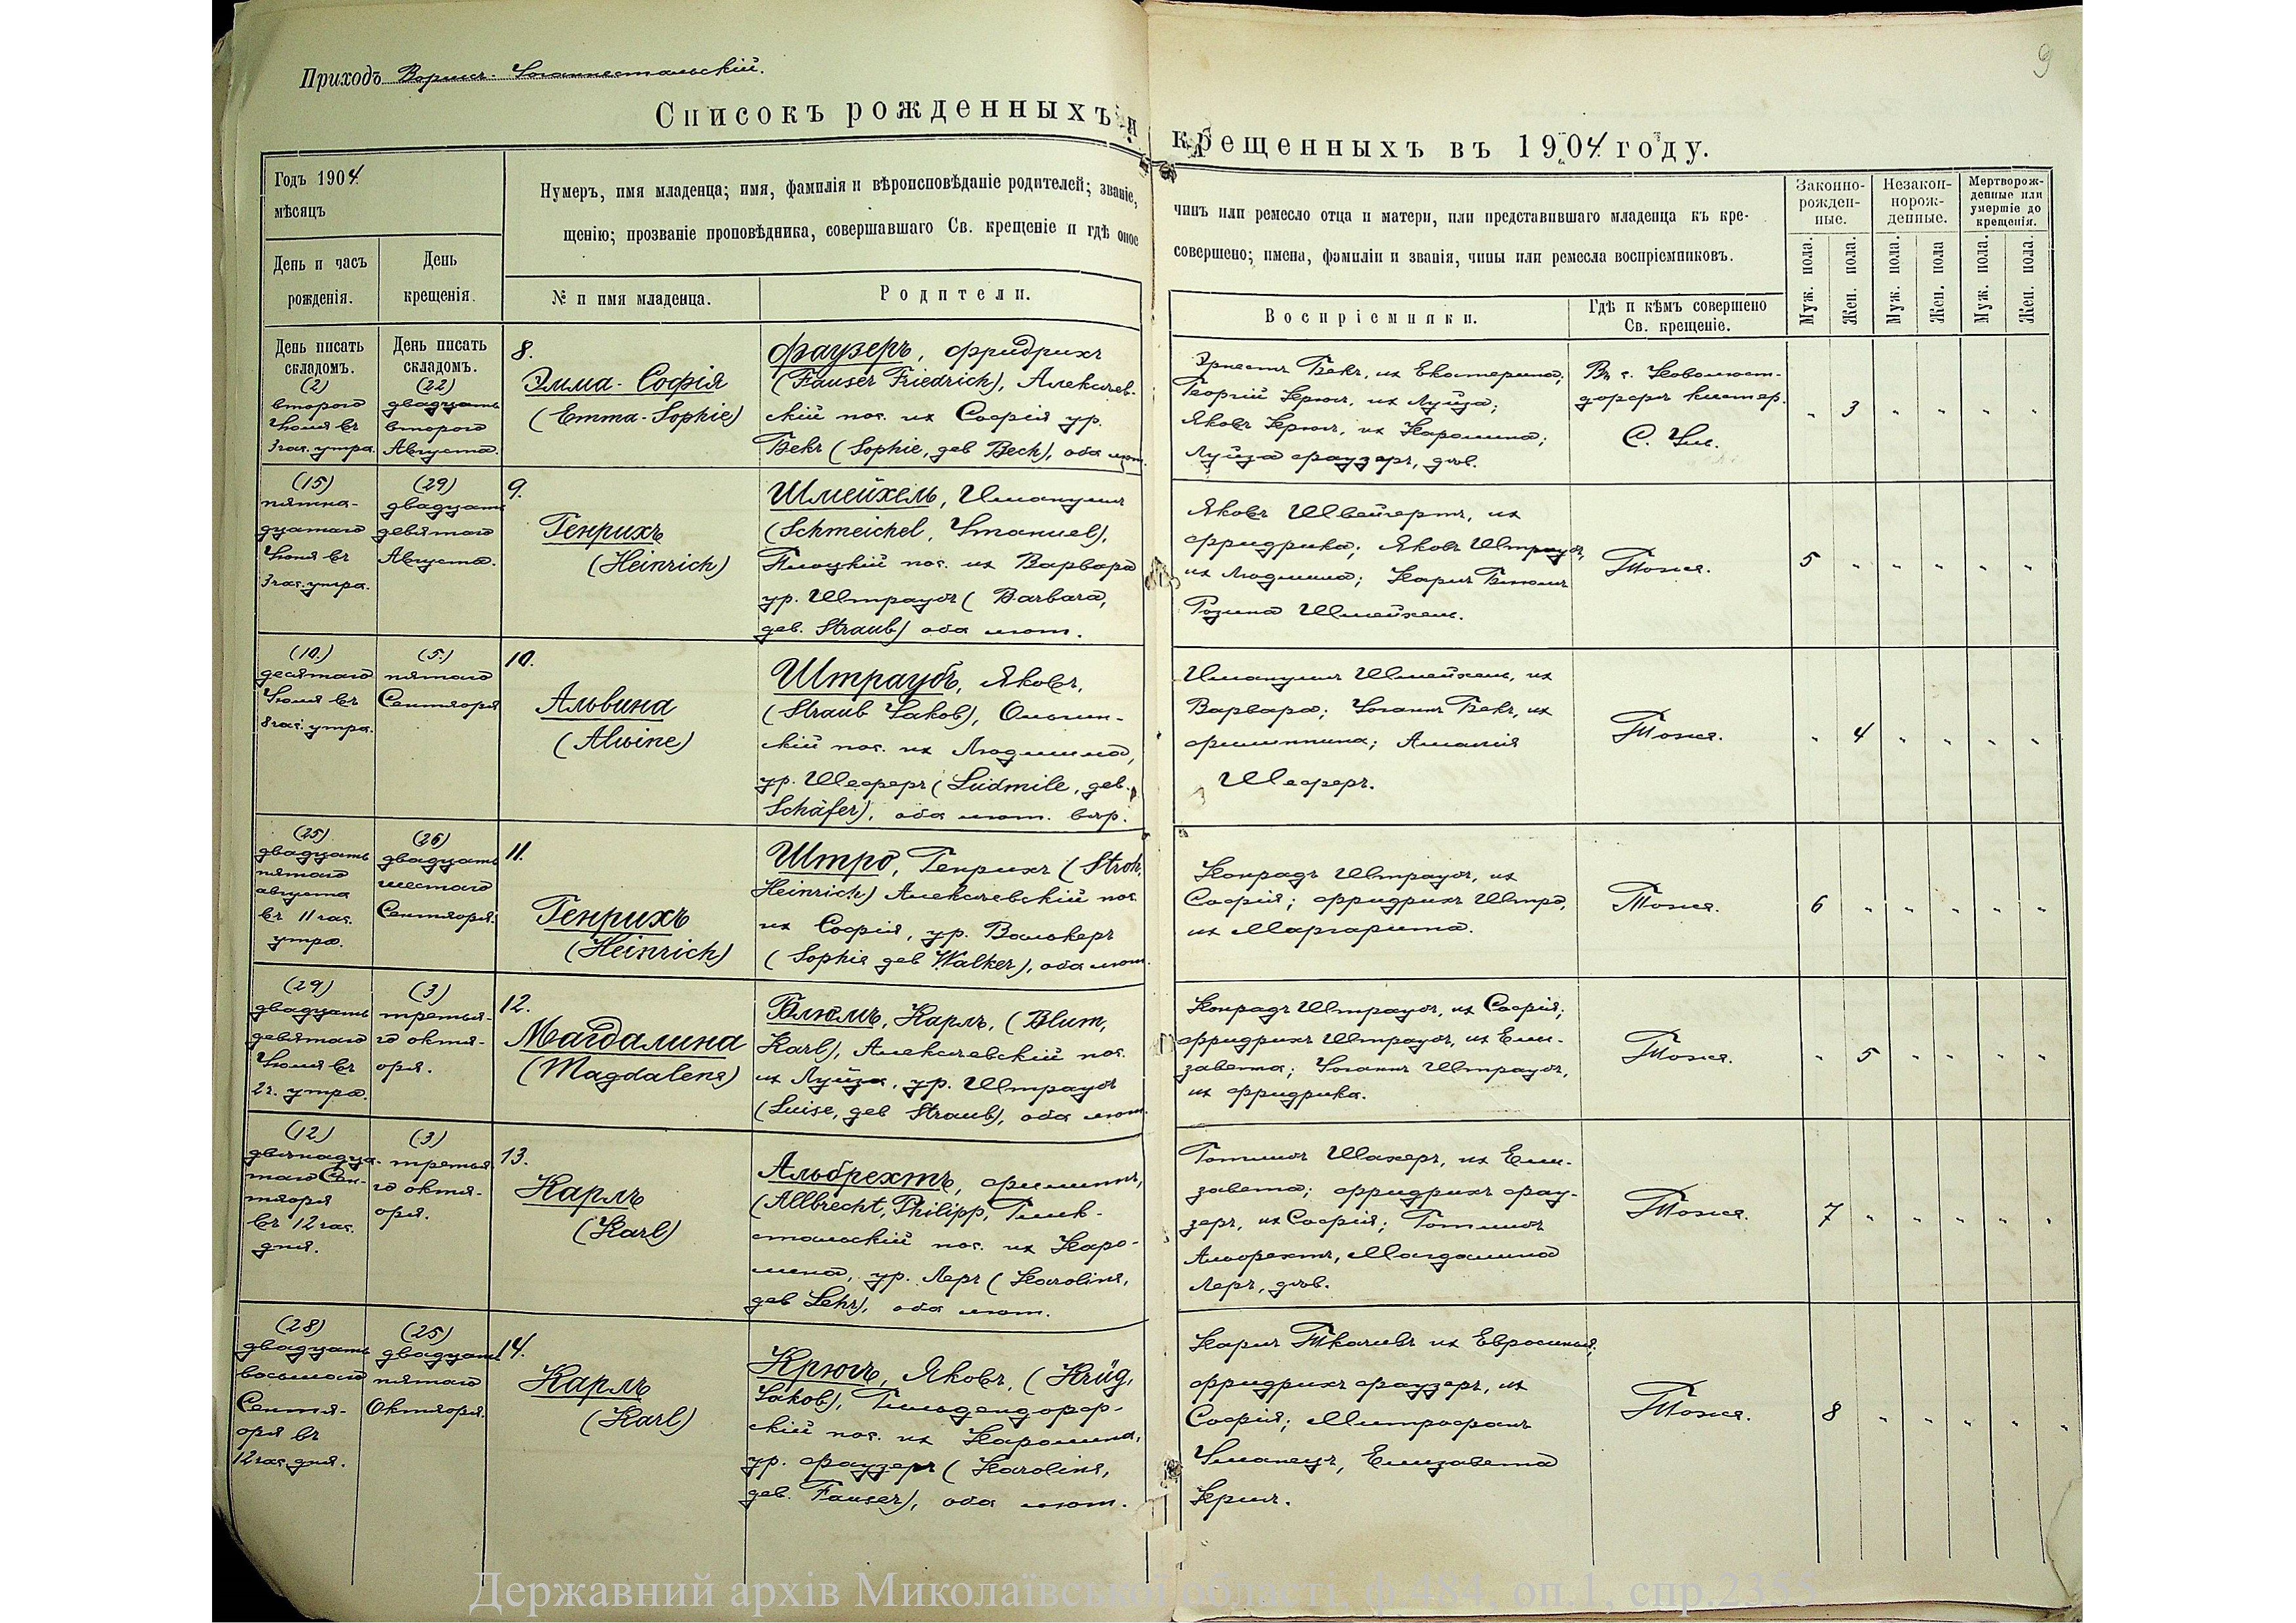 Приходъ Вормсъ-Іоганнестальскій.
9
Списокъ рожденныхъ и крещенныхъ въ 1904 году.
Годъ 1904
мѣсяцъ
День и часъ
рожденія.
День
крещенія.
Нумеръ, имя младенца; имя, фамилія и вѣроисповѣданіе родителей; званіе,
щенію; прозваніе проповѣдника, совершавшаго Св. крещеніе и гдѣ оное
№ и имя младенца.
Родители.
чинъ или ремесло отца и матери, или представившаго младенца къ кре-
совершено; имена, фамиліи и званія, чины или ремесла воспріемниковъ.
Воспріемники.
Гдѣ и кѣмъ совершено
Св. крещеніе.
Законно-
рожден-
ные.
Незакон-
норож-
денные.
Мертворож-
денные или
умершіе до
крещенія.
Муж. пола.
Жен. пола.
Муж. пола.
Жен. пола
Муж. пола.
Жен. пола.
День писать
складомъ.
(2)
второго
Іюля въ
3 час. утра.
День писать
складомъ.
(22)
двадцать
второго
Августа.
8.
Эмма-Софія
(Emma-Sophie)
Фаузеръ, Фридрихъ
(Fauser Friedrich), Алексѣев-
скій пос. их Софія ур.
Бекъ (Sophie, geb Beck), оба лют.
Эрнестъ Бекъ, их Екатерина;
Георгій Крюгъ, их Луйза;
Яковъ Крюгъ, их Каролина;
Луйза Фаузеръ, дѣв.
Въ с.
дорфъ кистер.
" 3 " " " "
(15)
пятна-
дцатаго
въ
3 час. утра.
(29)
двадцать
девятаго
Августа.
9.
Генрихъ
(Heinrich)
Шмейхель, Имануилъ
(Schmeichel, Imanuel),
пос. их Варвара
ур. Штраубъ (Barbara,
geb. Straub) оба лют.
Яковъ Швейгертъ, их
Фридрика; Яковъ Штраубъ,
их Людмила; Карлъ Блюмъ
Розина Шмейхель.
Тоже.
5 " " " " "
(10.)
десятаго
Іюля въ
8 час. утра.
(5.)
пятаго
Сентября
10.
Альвина
(Alwine)
Штраубъ, Яковъ,
(Straub Jakob), Ольгин-
скій пос. их Людмила,
ур. Шеферъ (Ludmile, geb.
Schäfer), оба лют. вѣр.
Имануилъ Шмейхель, их
Варвара; Іоганнъ Бекъ, их
Филиппина; Амалія
Шеферъ.
Тоже.
" 4 " " " "
(25)
двадцать
пятаго
августа
въ 11 час.
утра.
(26)
двадцать
шестаго
Сентября.
11.
Генрихъ
(Heinrich)
Штро, Генрихъ (Stroh,
Heinrich) Алексѣевскій пос.
их Софія, ур. Валькеръ
(Sophie geb Walker), оба лют.
Конрадъ Штраубъ, их
Софія; Фридрихъ Штро,
их Маргарита.
Тоже.
6 " " " " "
(29)
двадцать
девятаго
въ
2 ч. утра.
(3)
третья-
го октя-
бря.
12.
Магдалина
(Magdalene)
Блюмъ, Карлъ, (Blum,
Karl), Алексѣевскій пос.
их Луйза, ур. Штраубъ
(Luise, geb Straub), оба лют.
Конрадъ Штраубъ, их Софія;
Фридрихъ Штраубъ, их Ели-
завета; Іоганнъ Штраубъ,
их Фридрика.
Тоже.
" 5 " " " "
(12)
двѣнадца-
таго Сен-
тября
въ 12 час.
дня.
(3)
третья-
го октя-
бря.
13.
Карлъ
(Karl)
Альбрехтъ, Филиппъ,
(Allbrecht, Philipp,
стальскій пос. их Каро-
лина, ур. Леръ (Karoline,
geb Lehr), оба лют.
Готлибъ Шахеръ, их Ели-
завета; Фридрихъ Фау-
зеръ, их Софія; Готлибъ
Альбрехтъ, Магдалина
Леръ, дѣв.
Тоже.
7 " " " " "
(28)
двадцать
восьмого
Сентя-
бря въ
12 час. дня.
(25)
двадцать
пятаго
Октября.
14.
Карлъ
(Karl)
Крюгъ, Яковъ, (Krüg,
Jakob), Гильдендорф-
скій пос. их Каролина,
ур. Фаузеръ (Karoline,
geb. Fauser), оба лют.
Карлъ Ткачевъ их Евросинья;
Фридрихъ Фаузеръ, их
Софія; Митрофанъ
Уманецъ, Елизавета
Тоже.
8 " " " " "
Державний архів Миколаївської області, ф.484, оп.1, спр.2355